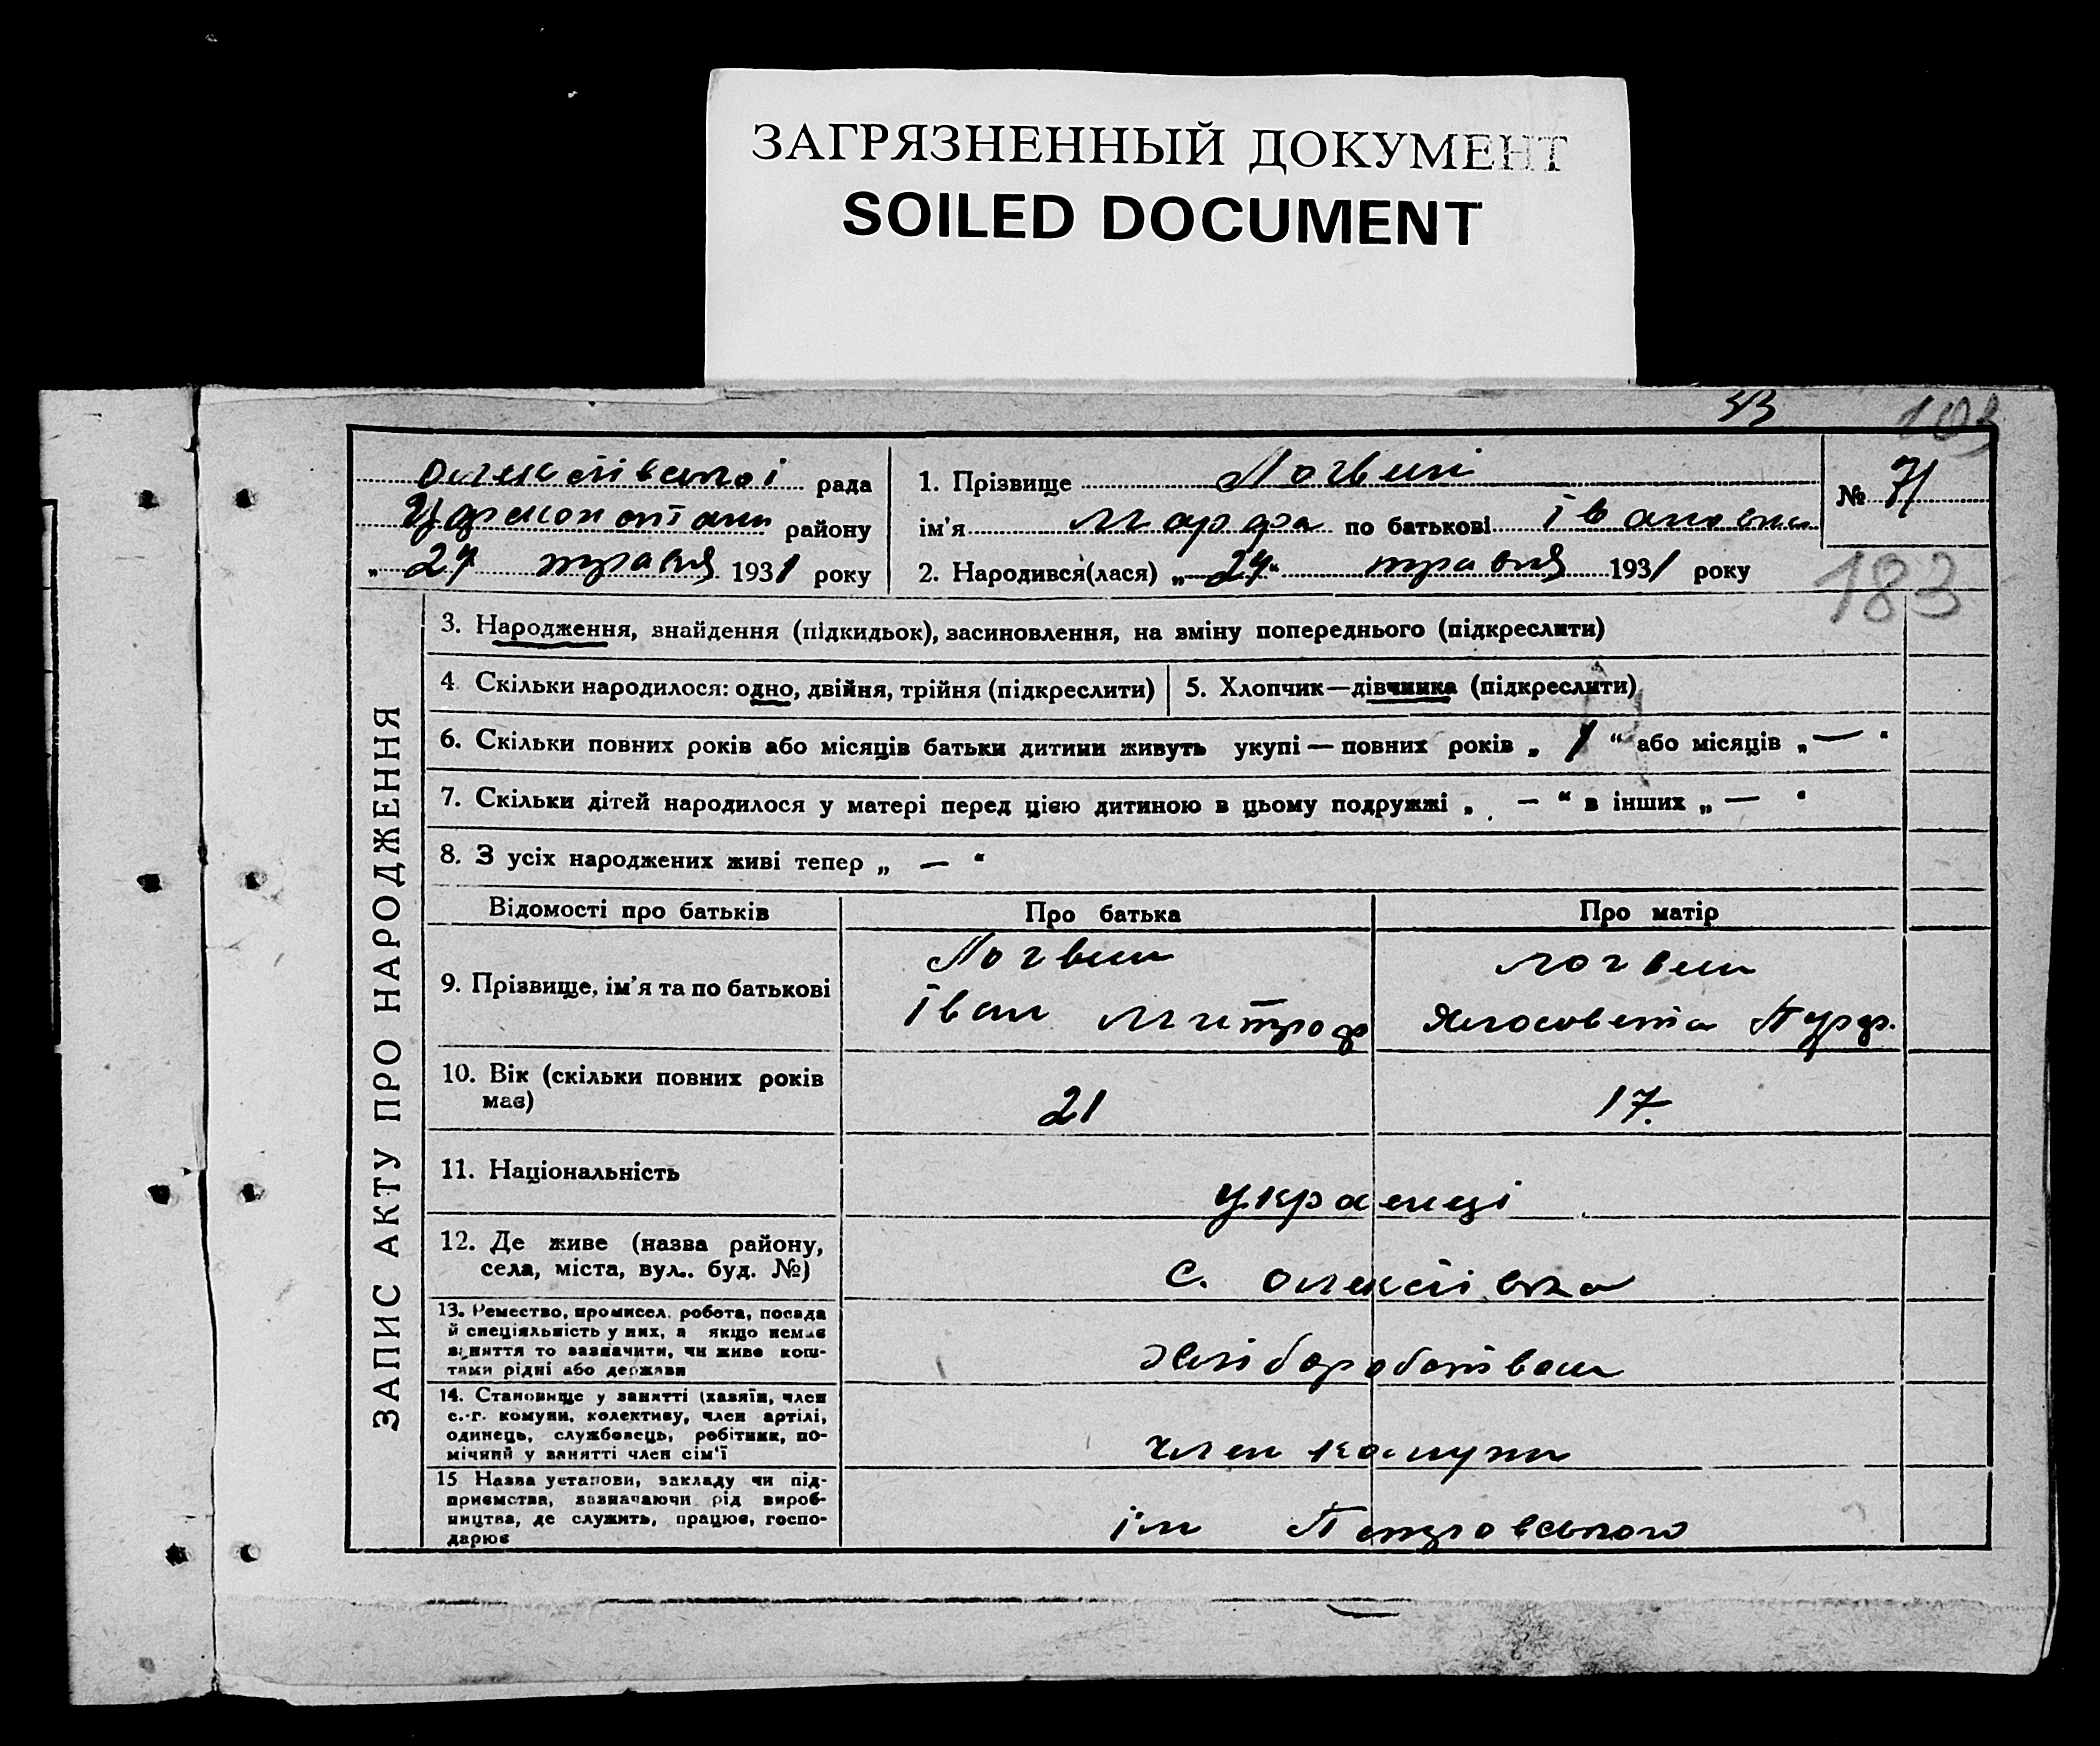 ЗАГРЯЗНЕННЫЙ ДОКУМЕНТ
SOILED DOCUMENT
33
103
Олексіївської рада
району
„27 травня 1931 року
1. Прізвище Логвин
ім'я Марфа по батькові Івановна
2. Народився(лася) „27“ травня 1931 року
№ 71
183
ЗАПИС АКТУ ПРО НАРОДЖЕННЯ
3. Народження, знайдення (підкидьок), засиновлення, на зміну попереднього (підкреслити)
4 Скільки народилося: одно, двійня, трійня (підкреслити)
5. Хлопчик—дівчинка (підкреслити)
6. Скільки повних років або місяців батьки дитини живуть укупі — повних років „ 1 “ або місяців „—“
7. Скільки дітей народилося у матері перед цією дитиною в цьому подружжі „ — “ в інших „ — “
8. З усіх народжених живі тепер „ — “
Відомості про батьків
Про батька
Про матір
9. Прізвище, ім'я та по батькові
Логвин
Іван Митроф
Логвин
Пурф.
10. Вік (скільки повних років має)
21
17.
11. Національність
українці
12. Де живе (назва району,
села, міста, вул.. буд. №)
с. Олексіївка
13. Ремество, промисел. робота, посада
й спеціяльність у них, а якщо немає
заняття то зазначити, чи живе кош-
тами рідні або держави
Хліборобством
14. Становище у занятті (хазяїн, член
с.-г. комуни, колективу, член артілі,
одинець, службовець, робітник, по-
мічний у занятті член сім'ї
Член комуни
15 Назва установи, закладу чи під-
приємства, зазначаючи рід вироб-
ництва, де служить, працює, госпо-
дарює
ім Петровського